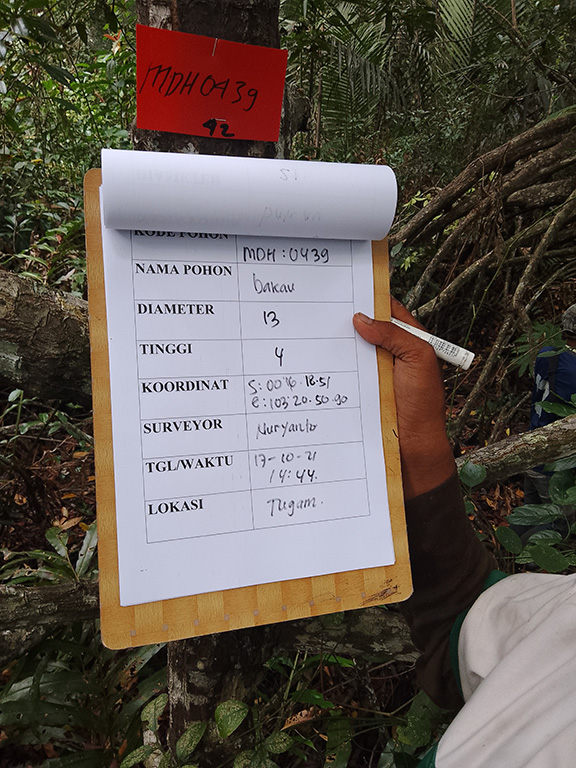 MDH0439
42
KODE POHON MDH : 0439
NAMA POHON bakau
DIAMETER 13
TINGGI 4
KOORDINAT S: 00°16.18.51
E: 103°20.50.90
SURVEYOR Nuryanto
TGL/WAKTU 17-10-21
14:44.
LOKASI Tugam.